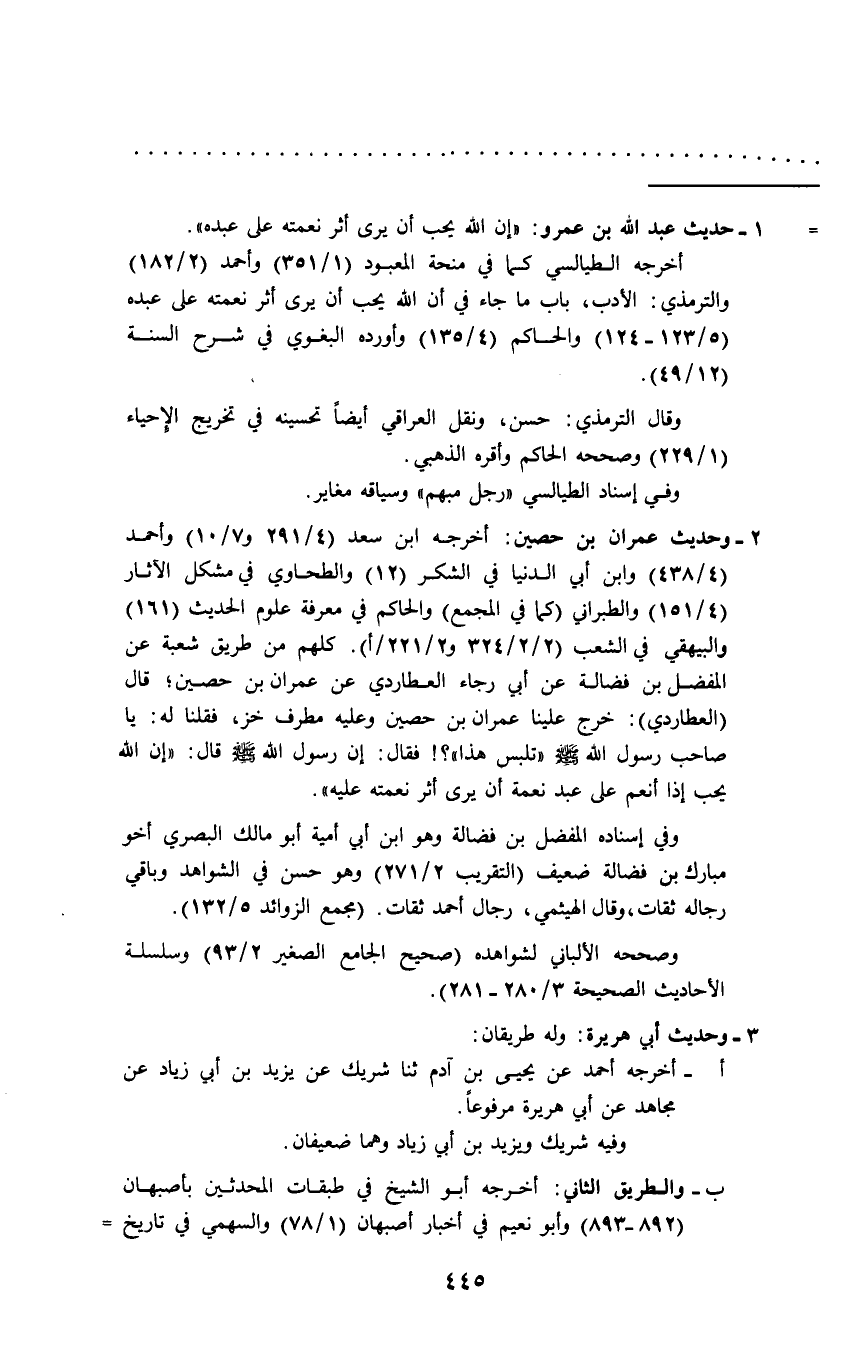 = ١ ـ حديث عبد الله بن عمرو: «إن الله يحب أن يرى أثر نعمته على عبده».
أخرجه الطيالسي كما في منحة المعبود (٣٥١/١) وأحمد (١٨٢/٢)
والترمذي: الأدب، باب ما جاء في أن الله يحب أن يرى أثر نعمته على عبده
(١٢٣/٥ ـ ١٢٤) والحاكم (١٣٥/٤) وأورده البغوي في شرح السنة
(٤٩/١٢).
وقال الترمذي: حسن، ونقل العراقي أيضاً تحسينه في تخريج الإحياء
(٢٢٩/١) وصححه الحاكم وأقره الذهبي.
وفي إسناد الطيالسي «رجل مبهم» وسياقه مغاير.
٢ ـ وحديث عمران بن حصين: أخرجه ابن سعد (٢٩١/٤ و١٠/٧) وأحمد
(٤٣٨/٤) وابن أبي الدنيا في الشكر (١٢) والطحاوي في مشكل الآثار
(١٥١/٤) والطبراني (كما في المجمع) والحاكم في معرفة علوم الحديث (١٦١)
والبيهقي في الشعب (٣٢٤/٢/٢ و٢٢١/٢/أ). كلهم من طريق شعبة عن
المفضل بن فضالة عن أبي رجاء العطاردي عن عمران بن حصين؛ قال
(العطاردي): خرج علينا عمران بن حصين وعليه مطرف خز، فقلنا له: يا
صاحب رسول الله ﷺ «تلبس هذا»؟! فقال: إن رسول الله ﷺ قال: «إن الله
يحب إذا أنعم على عبد نعمة أن يرى أثر نعمته عليه».
وفي إسناده المفضل بن فضالة وهو ابن أبي أمية أبو مالك البصري أخو
مبارك بن فضالة ضعيف (التقريب ٢٧١/٢) وهو حسن في الشواهد وباقي
رجاله ثقات، وقال الهيثمي، رجال أحمد ثقات. (مجمع الزوائد ١٣٢/٥).
وصححه الألباني لشواهده (صحيح الجامع الصغير ٩٣/٢) وسلسلة
الأحاديث الصحيحة ٢٨٠/٣ ـ ٢٨١).
٣ ـ وحديث أبي هريرة: وله طريقان:
أ ـ أخرجه أحمد عن يحيى بن آدم ثنا شريك عن يزيد بن أبي زياد عن
مجاهد عن أبي هريرة مرفوعاً.
وفيه شريك ويزيد بن أبي زياد وهما ضعيفان.
ب ـ والطريق الثاني: أخرجه أبو الشيخ في طبقات المحدثين بأصبهان
(٨٩٢ ـ ٨٩٣) وأبو نعيم في أخبار أصبهان (٧٨/١) والسهمي في تاريخ =
٤٤٥